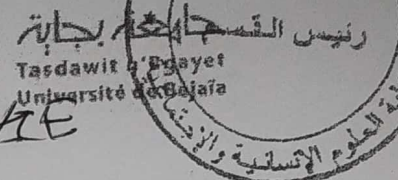 رئيس القسم
جامعة بجاية
Tasdawit n'Bgayet
Université de Béjaïa
العلوم الإنسانية والإجتماعية